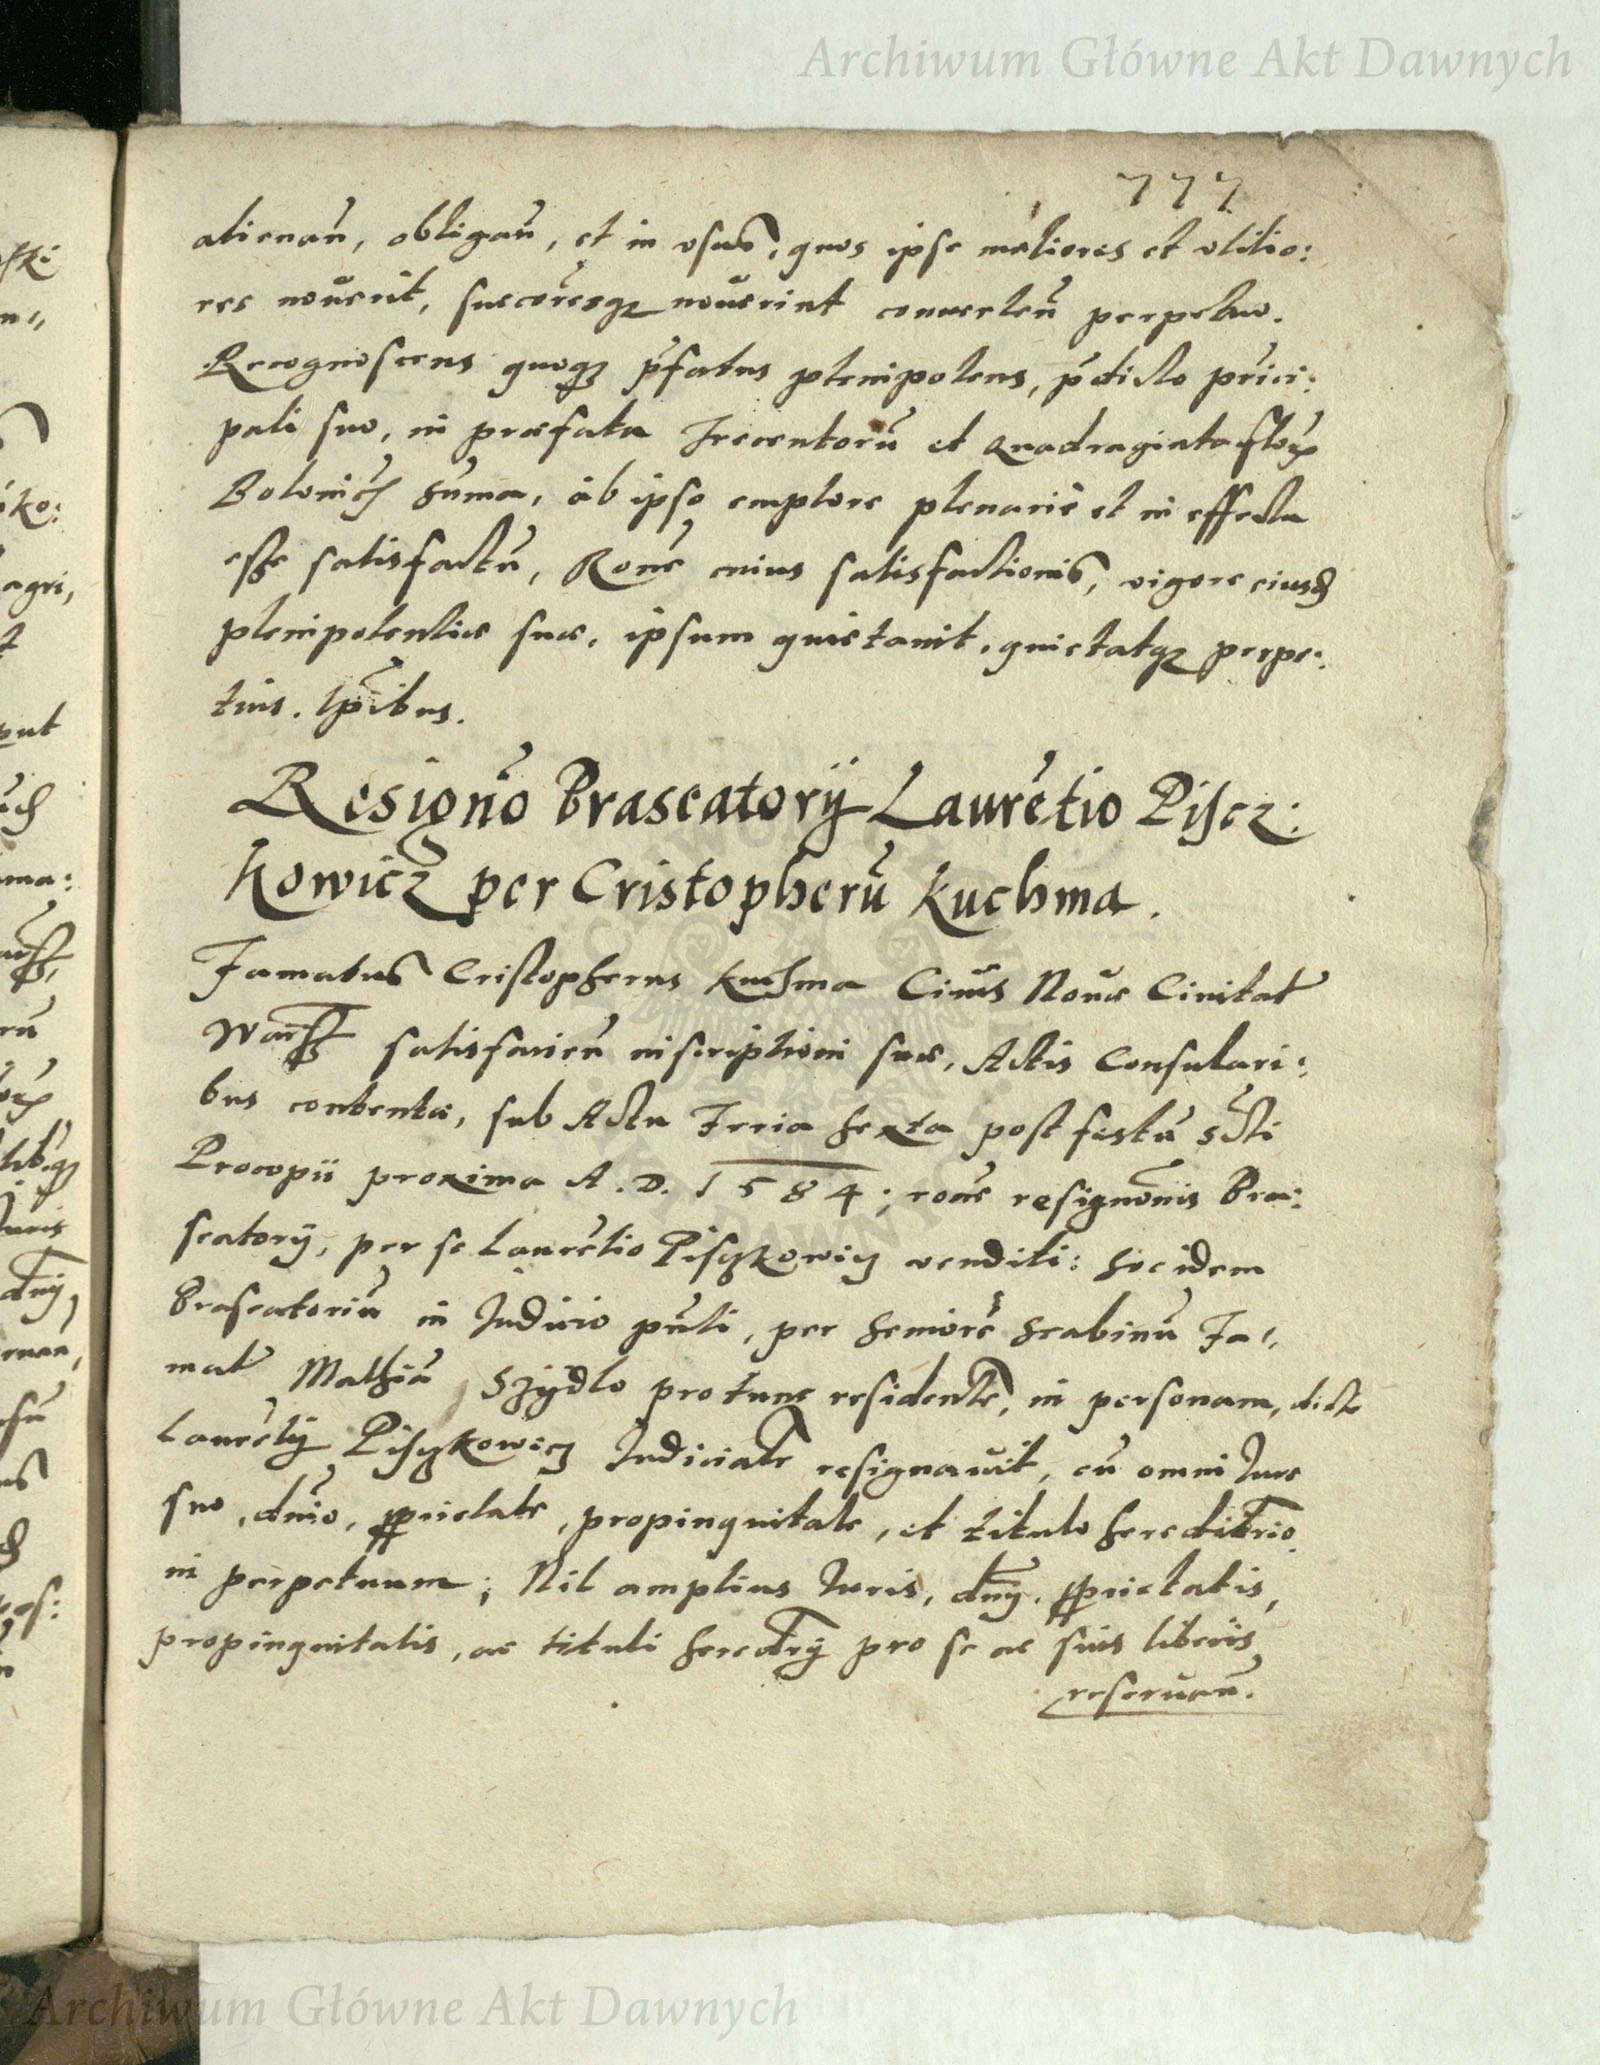 Archiwum Główne Akt Dawnych
777
alienañ, obligañ, et in usus, quos ipse meliores et utilio:
res noverit, succoresq noverint converteñ perpetuo.
Recognoscens quoq p̃fatus plenipotens, p̃dicto prĩci:
pali suo, in præfata Trecentorũ et Quadraginta flor̃
Poloñich Sum̃a, ab ipso emptore plenarie et in effectu
esse satisfactũ, Rone cuius satisfactionis, vigore eiusd
plenipotentiæ suæ, ipsum quietavit, quietatq perpe:
tuis tp̃ibus.
Resigno͂ Braseatorÿ Laurẽtio Piscz:
kowicz per Cristopherũ Kuchma.
Famatus Cristopherus Kuchma Civis Novæ Civitat̃
Warss satisfacieñ inscriptioni suæ, Actis Consulari:
bus contentæ, sub Actu Feria Sexta post festũ Sc̃ti
Procopii proxima A. D. 1584; roñe resignõnis Bra:
seatorÿ, per se Laurẽtio Piszkowicz venditi: hoc idem
Braseatoriũ in Iudicio pñti, per Seniorẽ Scabinũ Fa:
mat̃ Mathiã Szÿdlo pro tunc residente, in personam, dicti
Laurẽtÿ Piszkowicz Iudicialr̃ resignavit, cũ omni Iure
suo, dñio, proprietate, propinquitate, et titulo hereditr̃io
in perpetuum; Nil amplius Iuris, dñÿ, proprietatis,
propinquitatis, ac tituli heredtr̃ÿ pro se ac suis liberis
reservañ.
Archiwum Główne Akt Dawnych